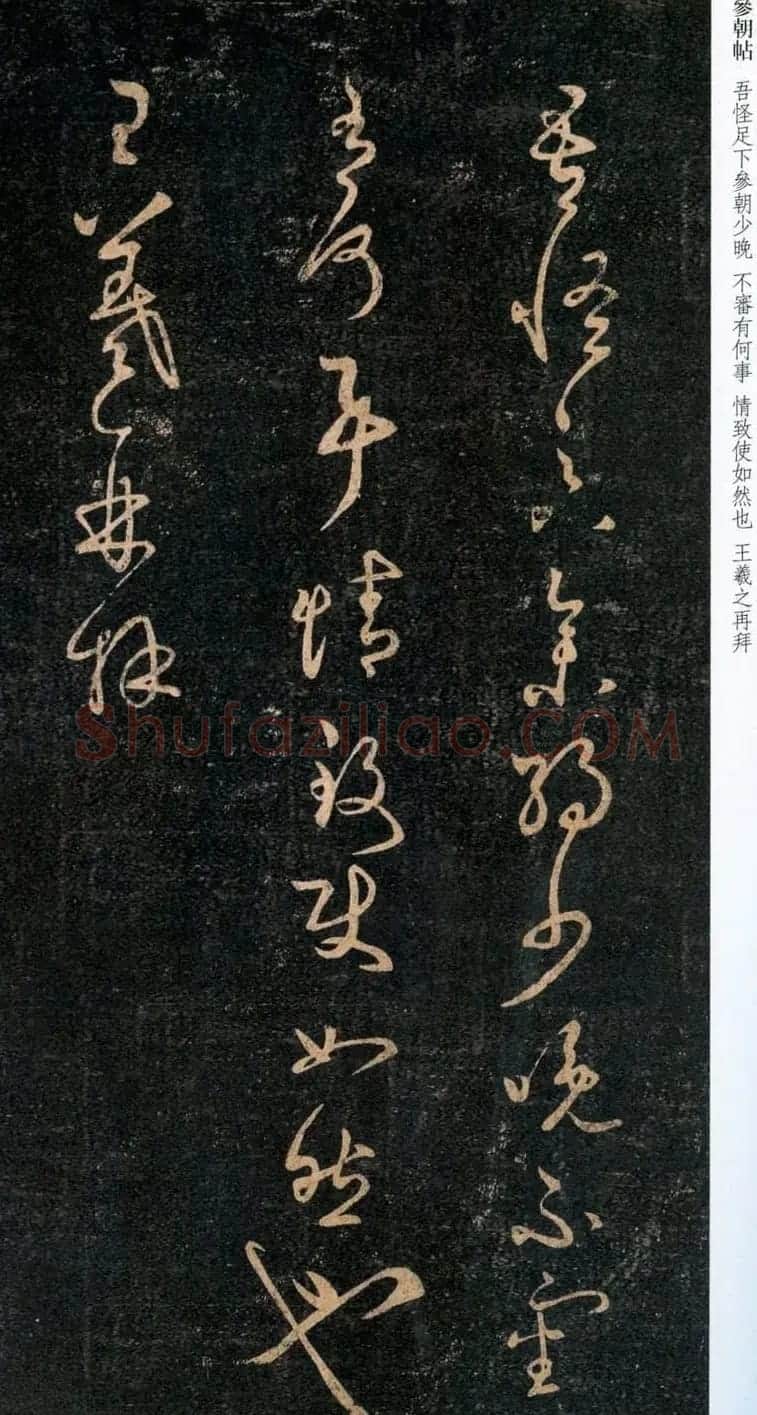 參朝帖 吾怪足下參朝少晚 不審有何事 情致使如然也 王羲之再拜
吾怪足下參朝少晚不審
有何事情致使如然也
王羲之再拜
Shufaziliao.COM